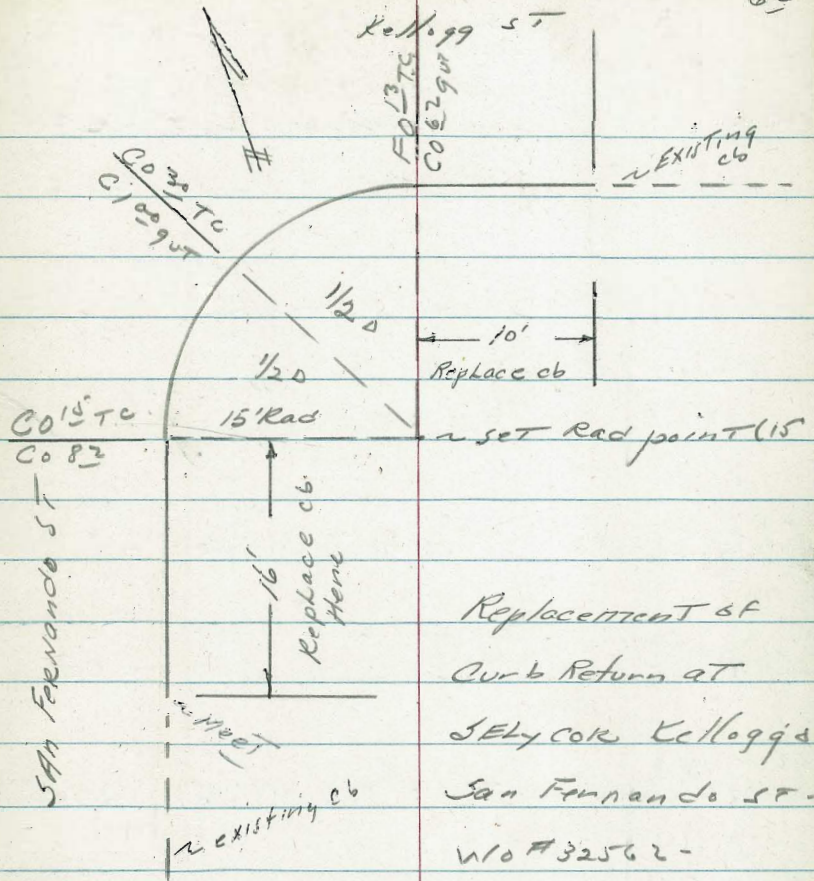 Kellogg ST
F0 13 TC
C0 62 gut
~ Existing
cb
C0 30 TC
C1 00 gut
1/2 Δ
1/2 Δ
10'
Replace cb
C0 15 TC
C0 82
15' Rad
~ set Rad point (15
16'
Replace cb.
Here
SAn FERNAndo ST
~ Meet
~ existing cb
Replacement of
Curb Return at
SELY COR Kellogg &
San Fernando ST-
W/O # 32562-